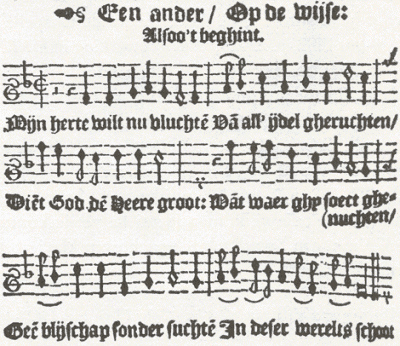 Een ander/ Op de wijse:
Alsoo't beghint.
Mijn herte wilt nu vluchtē Vā all' ydel gheruchten/
Diēt God dē Heere groot: Wāt waer ghy soect ghe-
(nuchten/
Geē blijschap sonder suchtē In deser werelts schoot